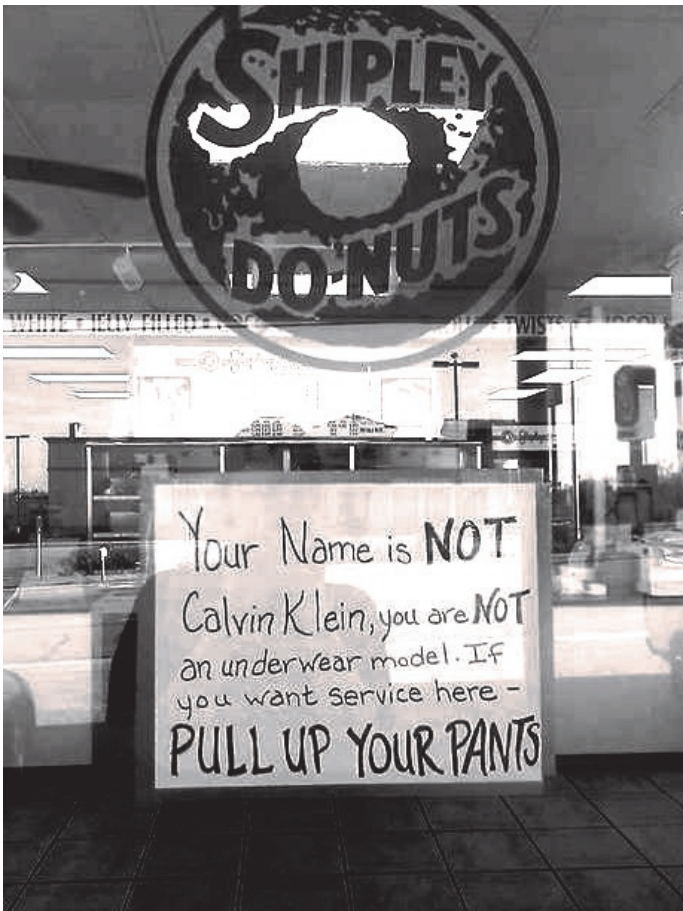 SHIPLEY
DO-NUTS
WHITE • JELLY FILLED •
TWISTS
Your Name is NOT
Calvin Klein, you are NOT
an underwear model. If
you want service here -
PULL UP YOUR PANTS